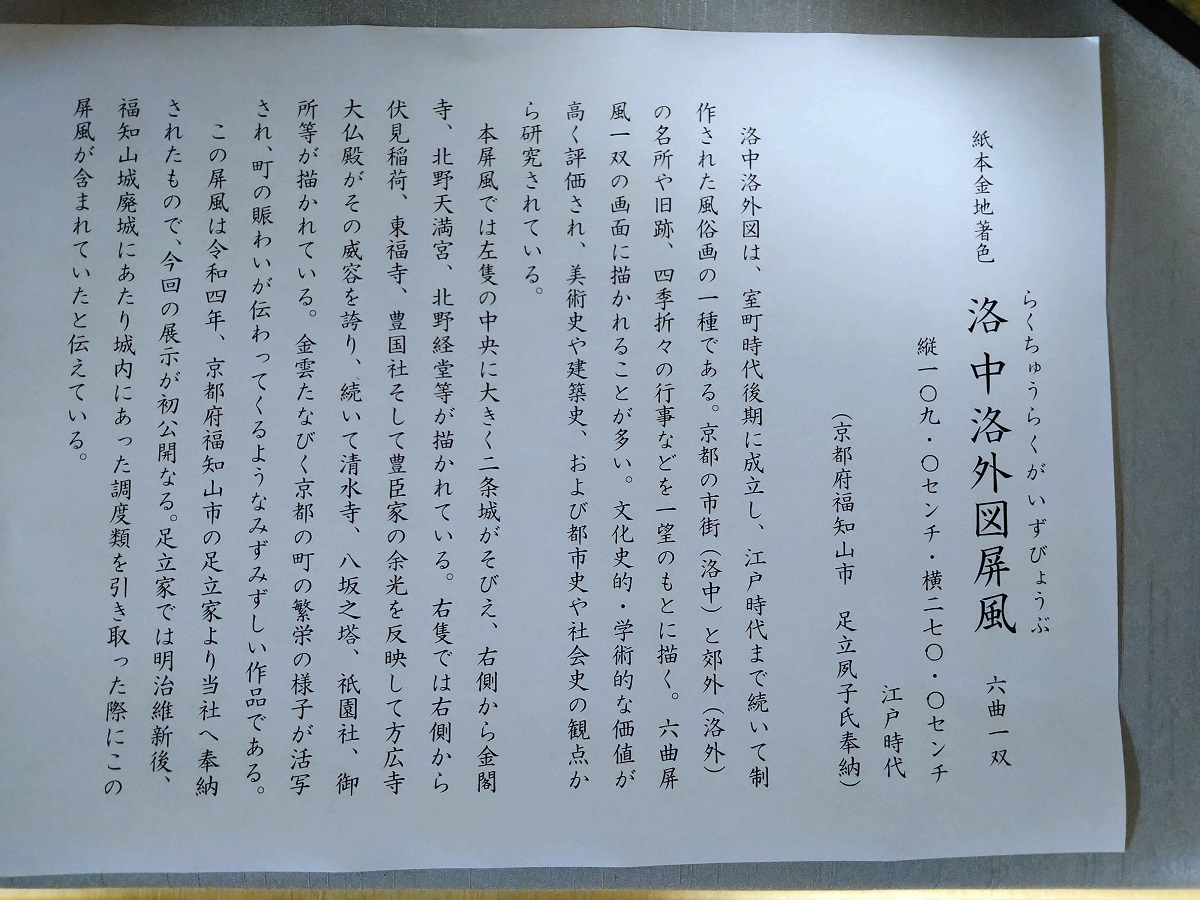 らくちゅうらくがいずびょうぶ
紙本金地著色 洛中洛外図屏風 六曲一双
縦一〇九・〇センチ・横二七〇・〇センチ
江戸時代
（京都府福知山市 足立夙子氏奉納）
洛中洛外図は、室町時代後期に成立し、江戸時代まで続いて制
作された風俗画の一種である。京都の市街（洛中）と郊外（洛外）
の名所や旧跡、四季折々の行事などを一望のもとに描く。六曲屏
風一双の画面に描かれることが多い。文化史的・学術的な価値が
高く評価され、美術史や建築史、および都市史や社会史の観点か
ら研究されている。
本屏風では左隻の中央に大きく二条城がそびえ、右側から金閣
寺、北野天満宮、北野経堂等が描かれている。右隻では右側から
伏見稲荷、東福寺、豊国社そして豊臣家の余光を反映して方広寺
大仏殿がその威容を誇り、続いて清水寺、八坂之塔、祇園社、御
所等が描かれている。金雲たなびく京都の町の繁栄の様子が活写
され、町の賑わいが伝わってくるようなみずみずしい作品である。
この屏風は令和四年、京都府福知山市の足立家より当社へ奉納
されたもので、今回の展示が初公開なる。足立家では明治維新後、
福知山城廃城にあたり城内にあった調度類を引き取った際にこの
屏風が含まれていたと伝えている。